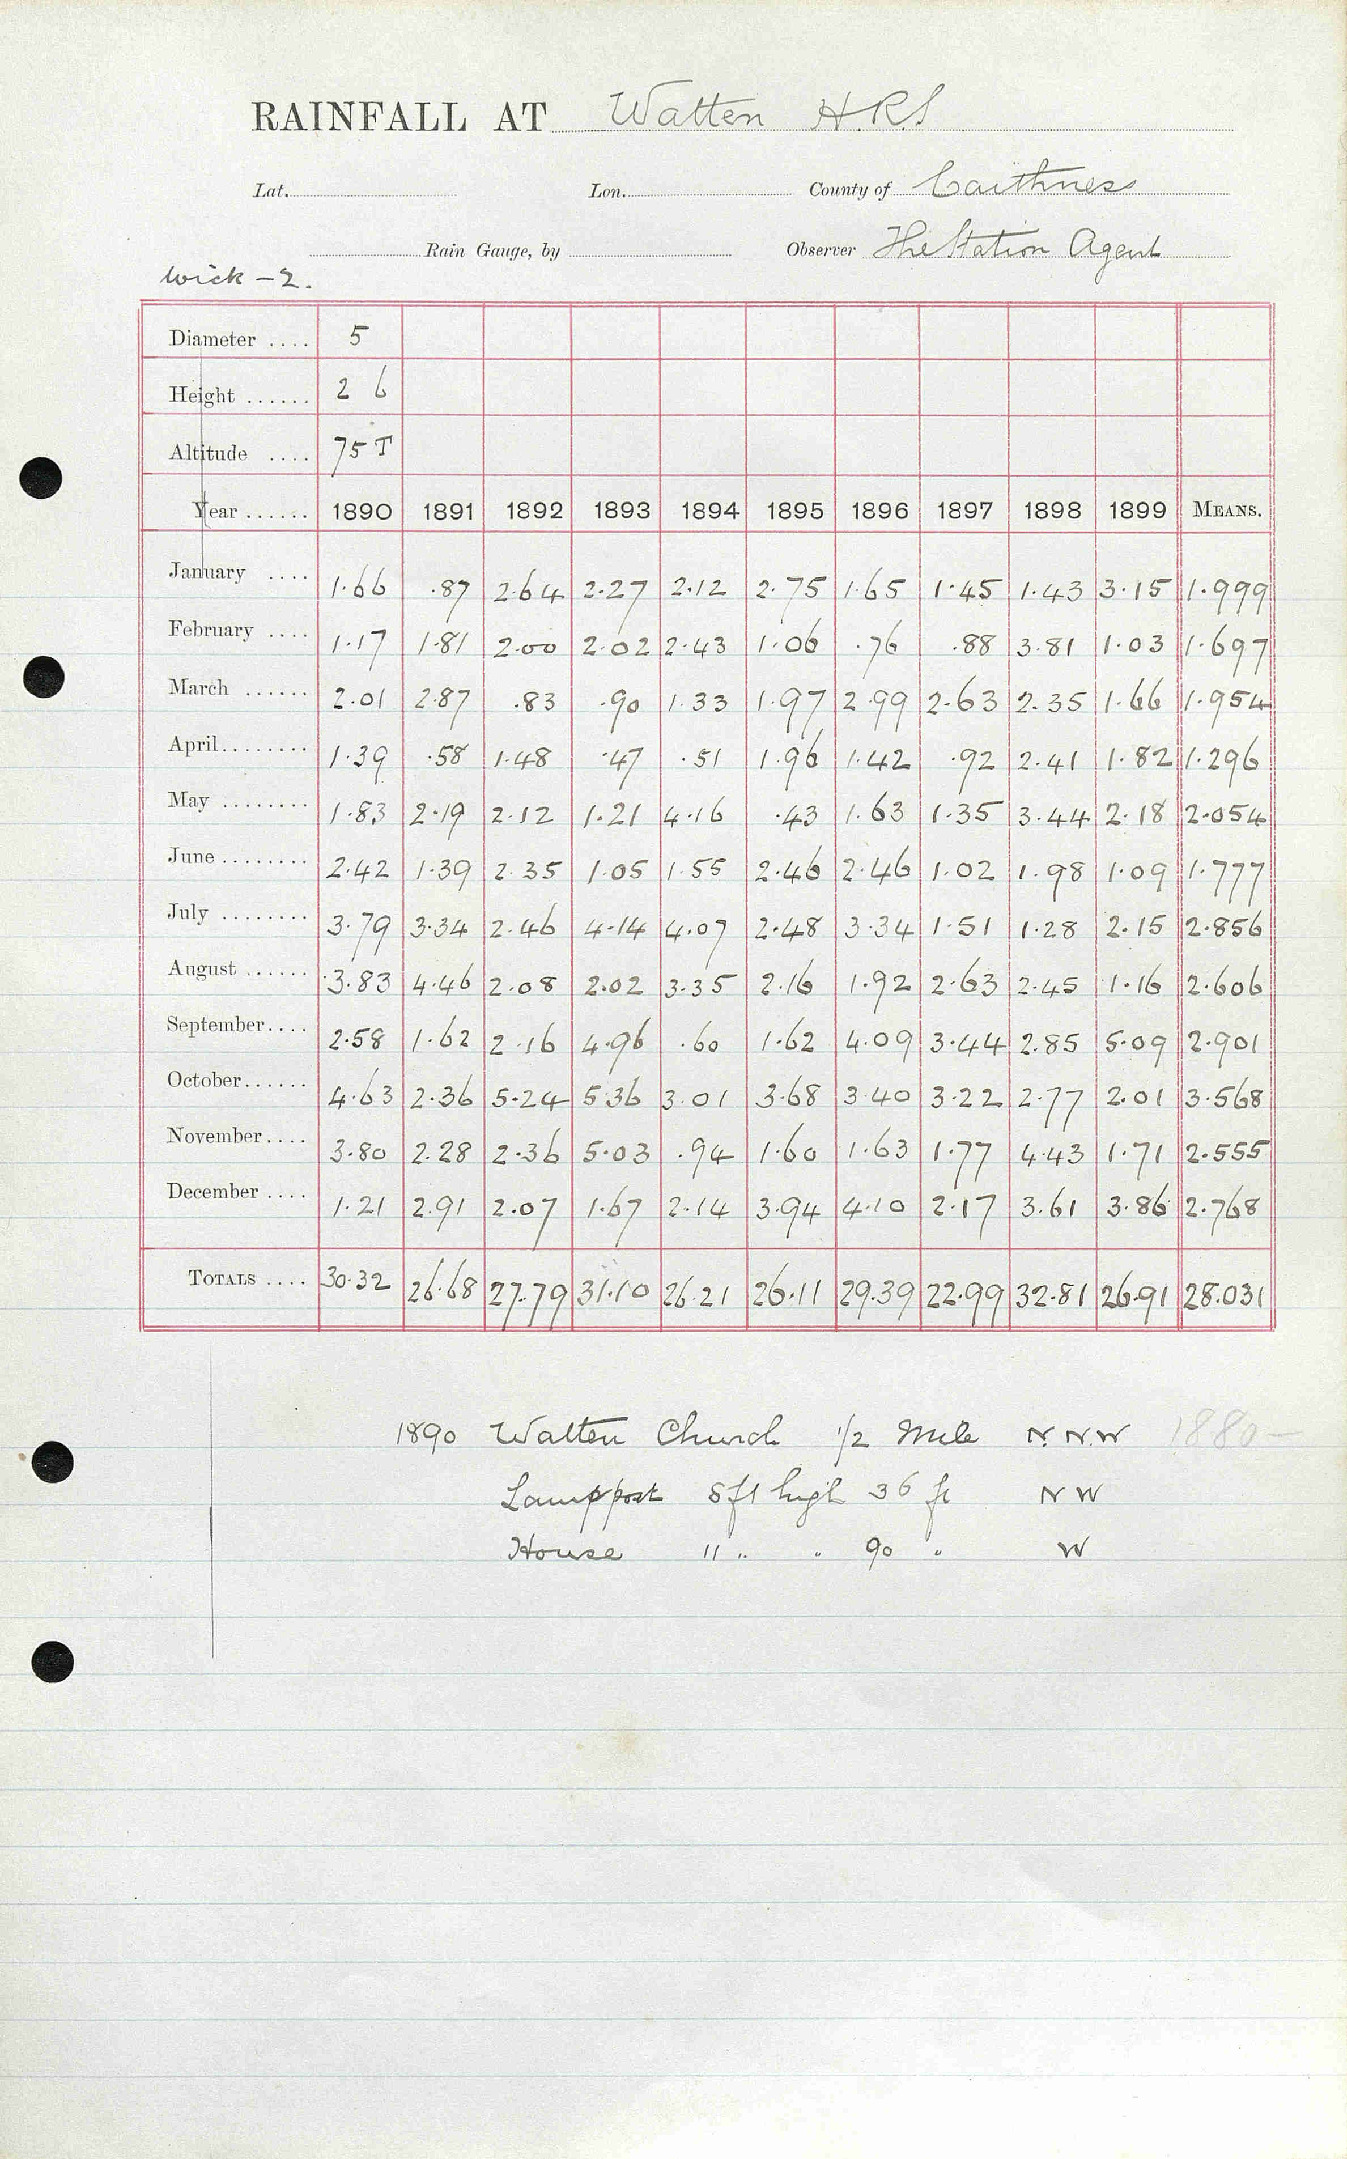 RAINFALL AT Watten H.R.S
Lat. Lon. County of Caithness
Rain Gauge, by Observer The Station Agent
Wick - 2.
Diameter .... 5
Height ...... 2 6
Altitude .... 75 T
Year ...... 1890 1891 1892 1893 1894 1895 1896 1897 1898 1899 MEANS.
January .... 1.66 .87 2.64 2.27 2.12 2.75 1.65 1.45 1.43 3.15 1.999
February .... 1.17 1.81 2.00 2.02 2.43 1.06 .76 .88 3.81 1.03 1.697
March ...... 2.01 2.87 .83 .90 1.33 1.97 2.99 2.63 2.35 1.66 1.954
April........ 1.39 .58 1.48 .47 .51 1.96 1.42 .92 2.41 1.82 1.296
May ........ 1.83 2.19 2.12 1.21 4.16 .43 1.63 1.35 3.44 2.18 2.054
June ........ 2.42 1.39 2.35 1.05 1.55 2.46 2.46 1.02 1.98 1.09 1.777
July ........ 3.79 3.34 2.46 4.14 4.07 2.48 3.34 1.51 1.28 2.15 2.856
August ...... 3.83 4.46 2.08 2.02 3.35 2.16 1.92 2.63 2.45 1.16 2.606
September.... 2.58 1.62 2.16 4.96 .60 1.62 4.09 3.44 2.85 5.09 2.901
October...... 4.63 2.36 5.24 5.36 3.01 3.68 3.40 3.22 2.77 2.01 3.568
November.... 3.80 2.28 2.36 5.03 .94 1.60 1.63 1.77 4.43 1.71 2.555
December .... 1.21 2.91 2.07 1.67 2.14 3.94 4.10 2.17 3.61 3.86 2.768
TOTALS .... 30.32 26.68 27.79 31.10 26.21 26.11 29.39 22.99 32.81 26.91 28.031
1890 Watten Church 1/2 Mile N.N.W 1880-
Lamppost 8ft high 36 ft NW
House 11 " " 90 " W